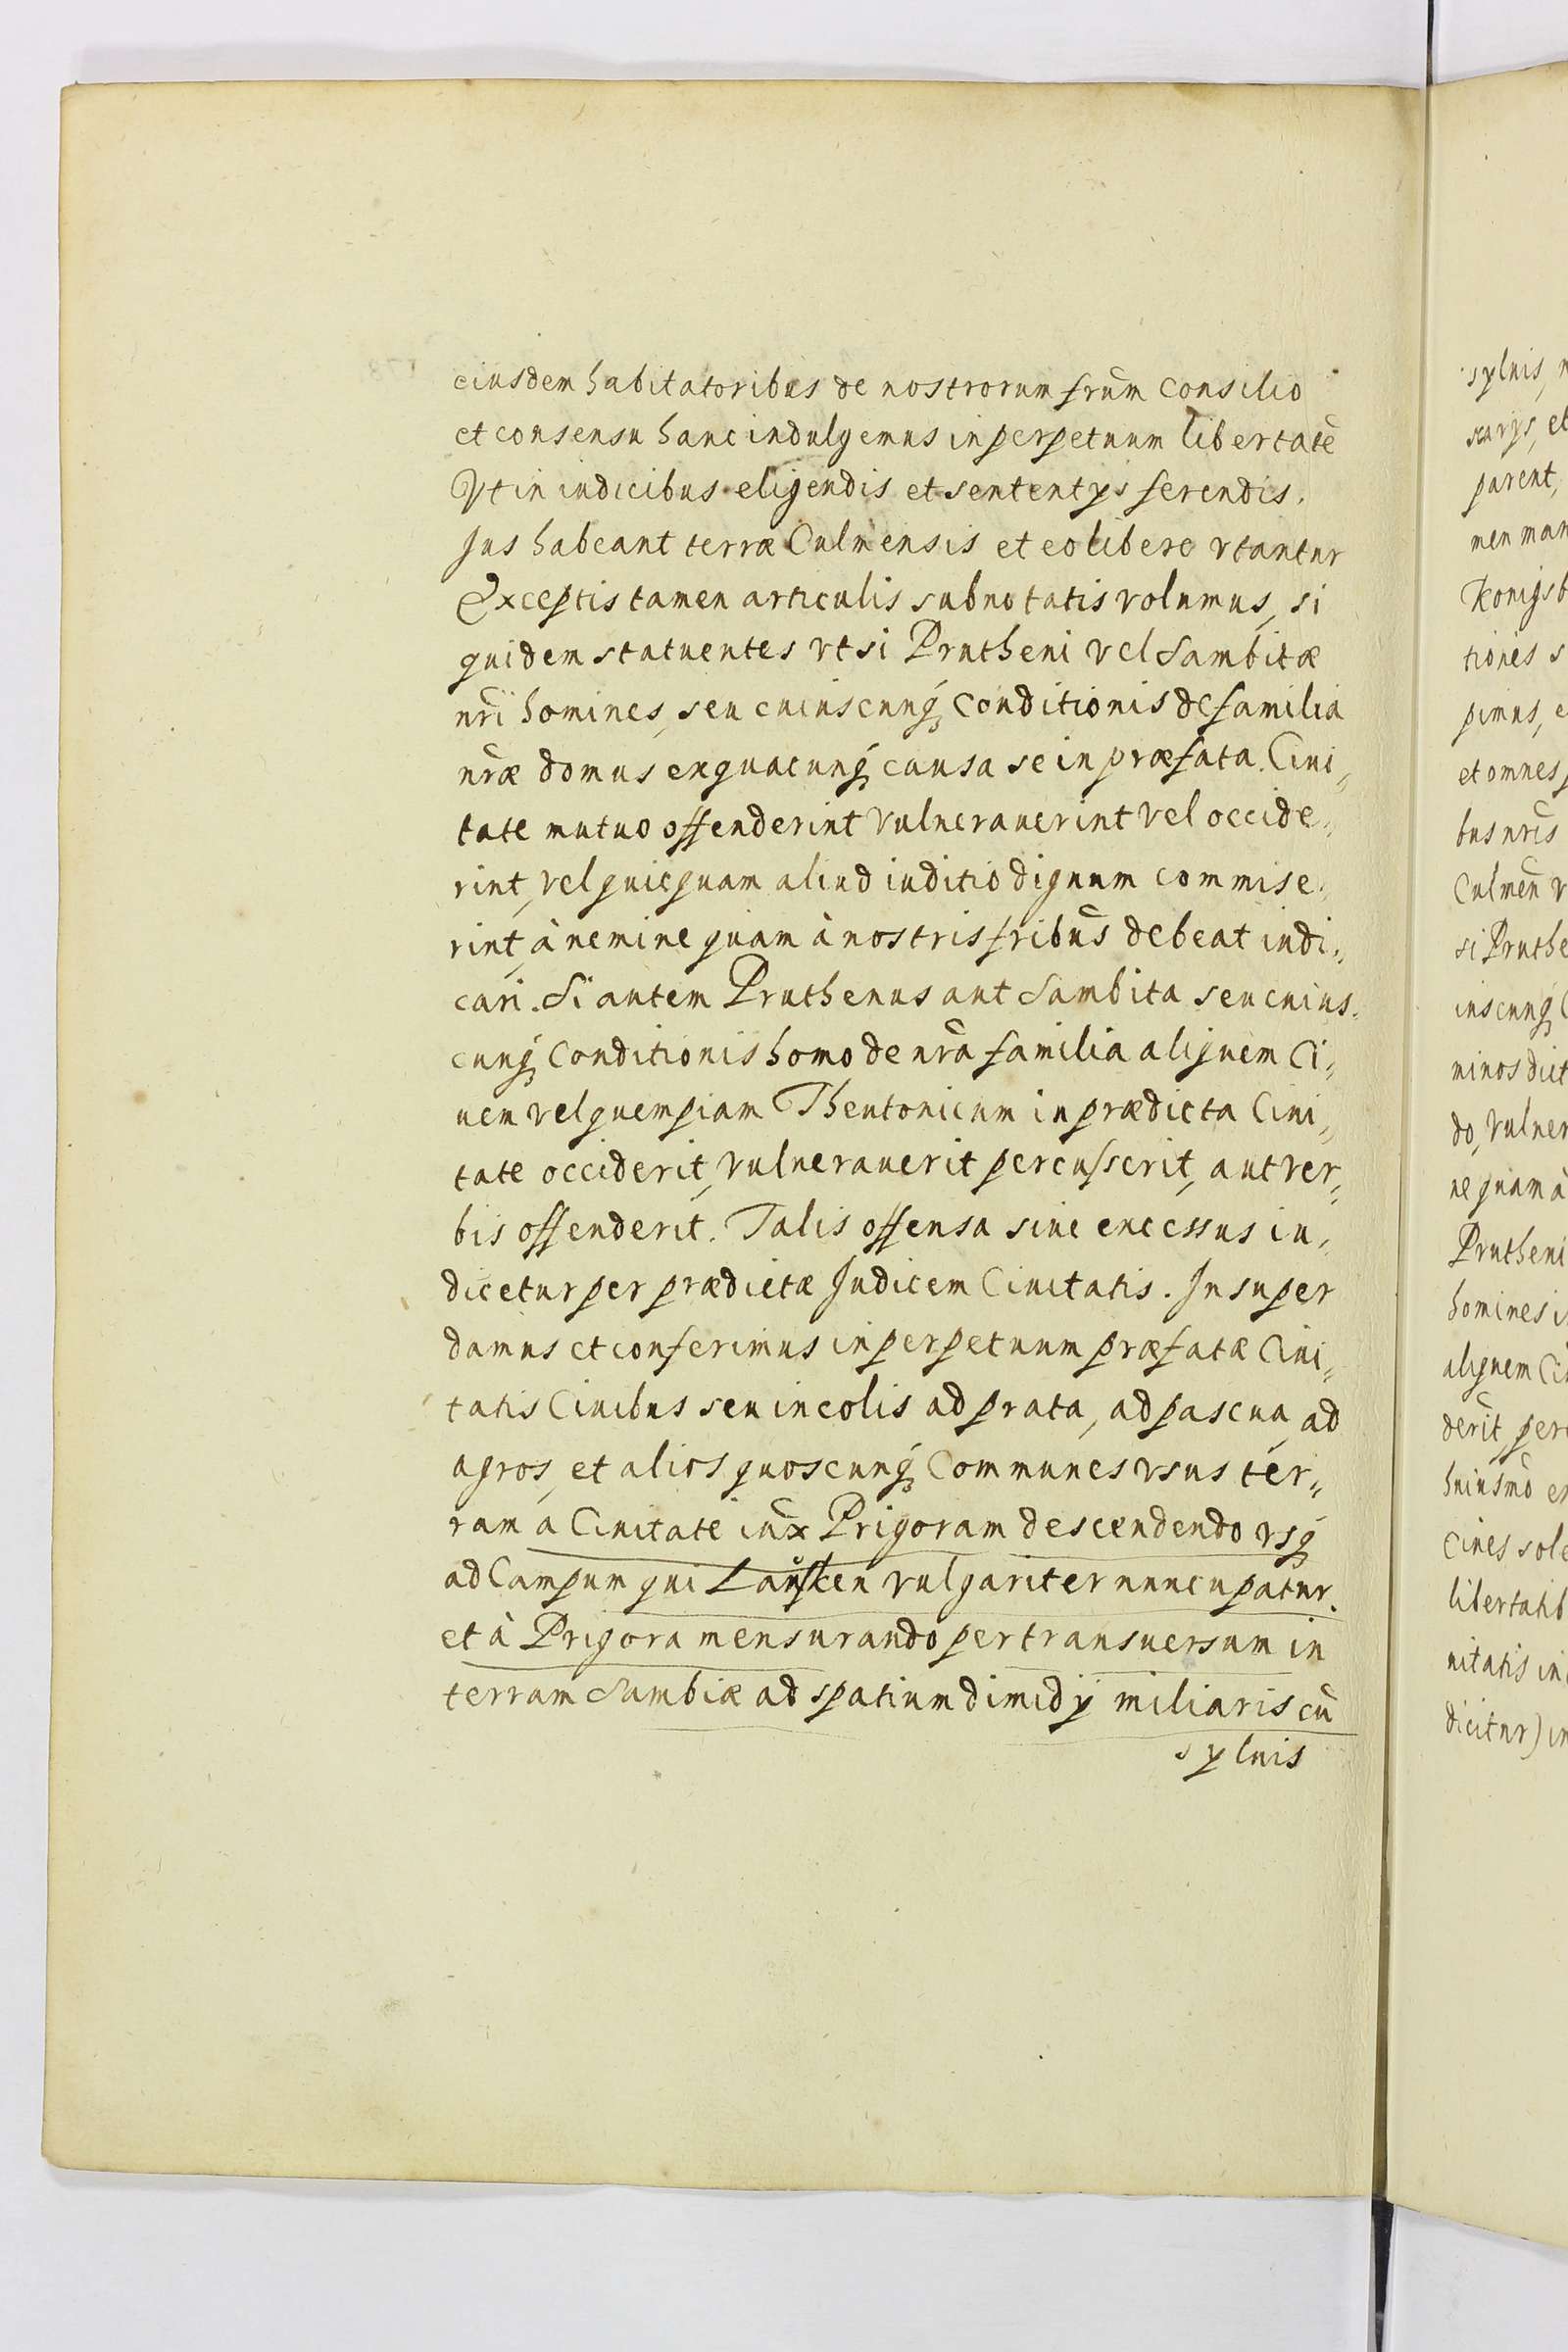 eiusdem habitatoribus de nostrorum frum̃ consilio
et consensu hanc indulgemus in perpetuum libertatẽ
Vt in iudicibus eligendis et sententijs ferendis.
Jus habeant terræ Culmensis et eo libere vtantur
Exceptis tamen articulis subnotatis volumus, si
quidem statuentes vt si Prutheni vel Sambitæ
nri̅ homines, seu cuiuscunq; conditionis de familia
nr̅æ domus exquacunq; causa se in præfata Ciui„
tate mutuo offenderint vulnerauerint vel occide„
rint, vel quicquam aliud iuditio dignum commise„
rint, à nemine quam à nostris fribus̅ debeat iudi„
cari. Si autem Pruthenus aut Sambita seu cuius„
cunq; Conditionis homo de nra̅ familia aliquem Ci„
uem vel quempiam Theutonicum in prædicta Ciui„
tate occiderit, vulnerauerit percusserit, aut ver„
bis offenderit. Talis offensa siue excessus iu„
dicetur per prædictæ Judicem Ciuitatis. Insuper
damus et conferimus in perpetuum præfatæ Ciui„
tatis Ciuibus seu incolis ad prata, ad pascua, ad
agros, et alios quoscunq; Communes vsus ter„
ram a Ciuitate iux̅ Prigoram descendendo vsq;
ad Campum qui Lauscken vulgariter nuncupatur.
et à Prigora mensurando per transuersum in
terram Sambiæ ad spatium dimidij miliaris cũ
syluis
syluis,
parent,
Konigsb
tiones s
pimus, e
et omnes
bus nris̅
Culmen̅ v
si Pruthe
iuscunq;
minos dict
do, vulner
ne quam à
Prutheni
homines i
aliquem Ci
derit, per
huiusmo̅ ex
ciues sole
libertatib
uitatis in
dicitur) in